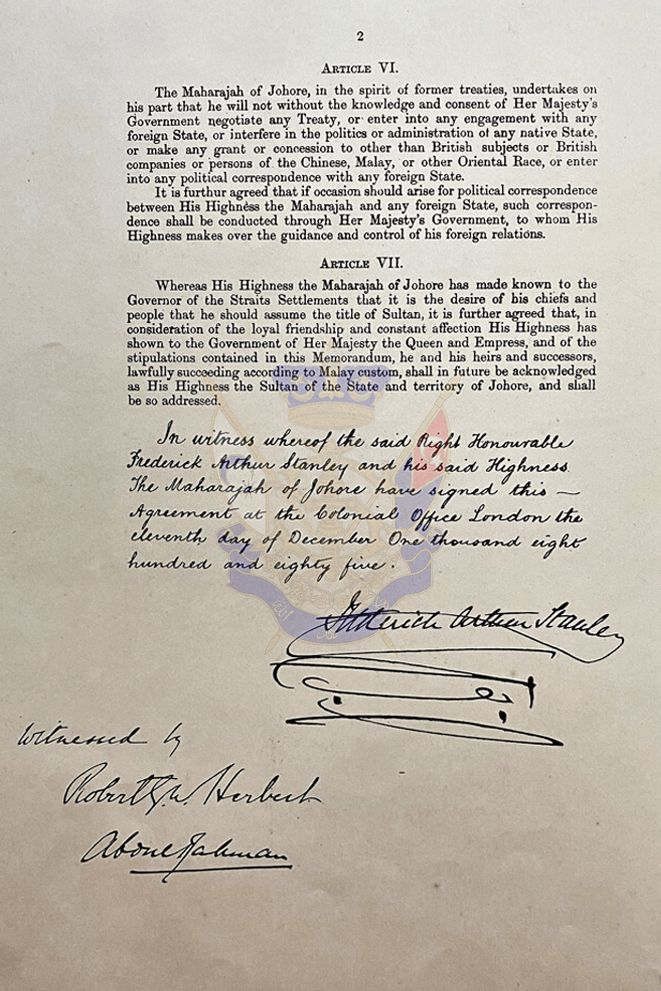 2
ARTICLE VI.
The Maharajah of Johore, in the spirit of former treaties, undertakes on
his part that he will not without the knowledge and consent of Her Majesty's
Government negotiate any Treaty, or enter into any engagement with any
foreign State, or interfere in the politics or administration of any native State,
or make any grant or concession to other than British subjects or British
companies or persons of the Chinese, Malay, or other Oriental Race, or enter
into any political correspondence with any foreign State.
It is furthur agreed that if occasion should arise for political correspondence
between His Highness the Maharajah and any foreign State, such correspon-
dence shall be conducted through Her Majesty's Government, to whom His
Highness makes over the guidance and control of his foreign relations.
ARTICLE VII.
Whereas His Highness the Maharajah of Johore has made known to the
Governor of the Straits Settlements that it is the desire of his chiefs and
people that he should assume the title of Sultan, it is further agreed that, in
consideration of the loyal friendship and constant affection His Highness has
shown to the Government of Her Majesty the Queen and Empress, and of the
stipulations contained in this Memorandum, he and his heirs and successors,
lawfully succeeding according to Malay custom, shall in future be acknowledged
as His Highness the Sultan of the State and territory of Johore, and shall
be so addressed.
In witness whereof the said Right Honourable
Frederick Arthur Stanley and his said Highness
The Maharajah of Johore have signed this —
Agreement at the Colonial Office London the
eleventh day of December One thousand eight
hundred and eighty five.
Frederick Arthur Stanley
Witnessed by
Robert G. W. Herbert
Abdul Rahman